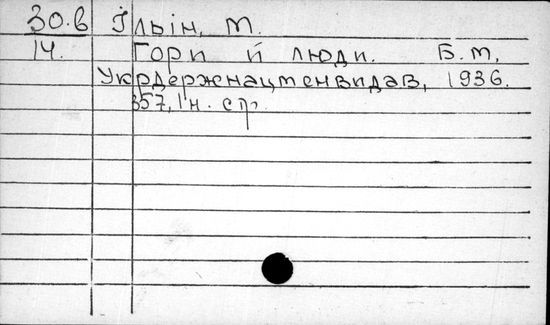 30.б Ільін, М.
14. Гори й люди. Б.м,
Укрдержнацменвидав, 1936.
357, 1н. стр.